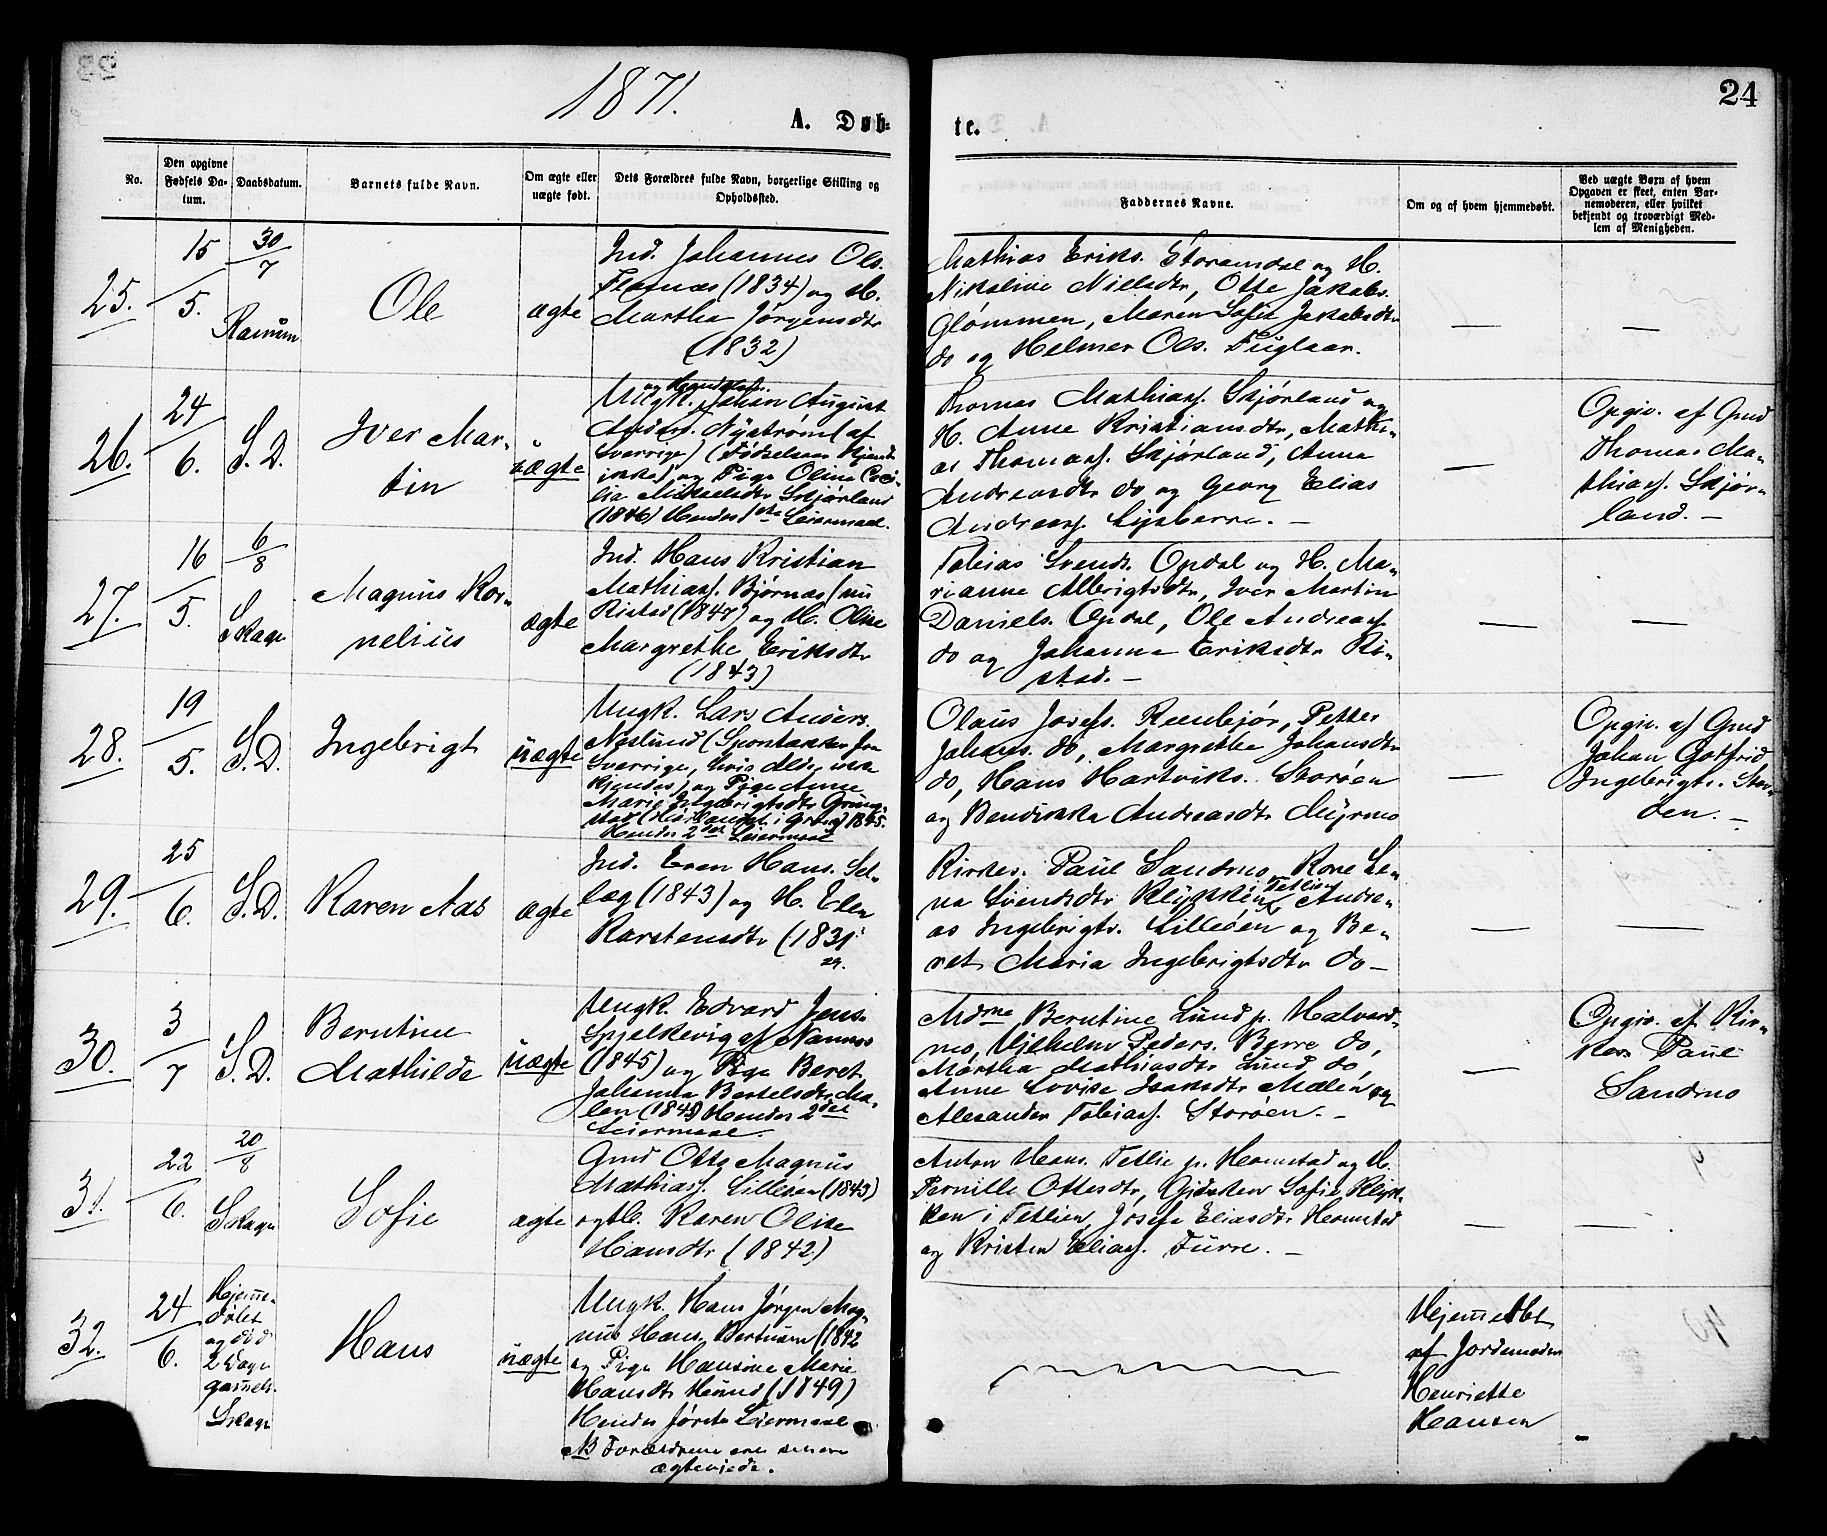 1871.
24
A. Døb-
te.
No.
Den opgivne
Fødsels Da-
tum.
Daabsdatum.
Barnets fulde Navn.
Om ægte eller
uægte født.
Dets Forældres fulde Navn, borgerlige Stilling og
Opholdssted.
Faddernes Navne.
Om og af hvem hjemmedøbt.
Ved uægte Børn af hvem
Opgaven er skeet, enten Bar-
nemoderen, eller hvilket
bekjendt og troværdigt Med-
lem af Menigheden.
25.
15/5.
30/7
Ole
ægte
Ind. Johannes Ols.
Flasnæs (1834) og H.
Martha Jørgensdtr
(1832)
Mathias Eriks. Storemdal og H.
Nikoline Nilsdtr, Otte Jakobs.
Glømmen, Maren Sofie Jakobsdtr
do og Helmer Ols. Fuglaar.
—
—
26.
24/6.
S.D.
Iver Mar-
tin
uægte
Ungk. Johan August
Anders. Nystrøm (af
Sverrige) (Fødselsaar kjendes
ikke) og Pige Oline Ceci-
lia Mikaelsdtr Skjørland
(1846) Hendes 1ste Leiermaal.
Thomas Mathiass. Skjørland og
H. Anne Kristiansdtr, Mathi-
as Thomass. Skjørland, Anna
Andreasdtr do og Georg Elias
Andreass. —
—
Opgiv. af Gmd
Thomas Ma-
thiass. Skjør-
land. —
27.
16/5.
6/8
Skage
Magnus Kor-
nelius
ægte
Ind. Hans Kristian
Mathiass. Bjørnæs (nu
Ristad (1847) og H. Oline
Margrethe Eriksdtr
(1843)
Tobias Svends. Opdal og H. Ma-
rianne Albrigtsdtr, Iver Martin
Daniels. Opdal, Ole Andreass.
do og Johanna Eriksdtr Ri-
stad. —
—
—
28.
19/5.
S.D.
Ingebrigt
uægte
Ungk. Lars Anders.
Næslund (Spontakker fra
Sverrige, hvis Alder ikke
kjendes) og Pige Anne
Marie Ingebrigtsdtr
i Grong) 1845.
Hendes 2det Leiermaal
Olaus Josefs. Rembjør, Petter
Johans. do, Margrethe Johansdtr
do, Hans Hartviks. Storøen
og Bendikka Andreasdtr Myrmo
—
Opgiv. af Gmd
Johan Gotfrid
Ingebrigts. Stor-
øen. —
29.
25/6.
S.D.
Karen Aas
ægte
Ind. Even Hans. Sel-
læg (1843) og H. Elen
Karstensdtr (1831
29.
Kirkes. Paul Sandmo, Kone Le-
na Svendsdtr Klykken Tetlien, Andre-
as Ingebrigts. Lilleøen og Be-
ret Maria Ingebrigtsdtr do —
—
—
30.
3/7
S.D.
Berntine
Mathilde
uægte
Ungk. Edvard Jens.
Spjelkevig af Namsos
(1845) og Pige Beret
Johanna Bertelsdtr Mo-
len (1843) Hendes 2det
Leiermaal.
Mdme Berntine Lund p. Halvard-
mo, Vilhelm Peders. Berre do,
Martha Mathiasdtr Lund do,
Anne Lovise Isaksdtr Molen og
Alexander Tobiass. Storøen. —
—
Opgiv. af Kir-
kes. Paul
Sandmo
31.
22/6.
20/8
Skage
Sofie
ægte
Gmd Otto Magnus
Mathiass. Lilleøen (1843)
og H. Karen Oline
Hansdtr (1842)
Anton Hans. Tetlie p. Hemstad og H.
Pernille Ottesdtr, Gjdsken Sofie Klyk-
ken i Tetlien, Josefa Eliasdtr Hemstad
og Kristen Eliass. Furre. —
—
—
32.
24/6.
Hjemme-
døbt
og død
2 Dage
gammel.
Skage
Hans
uægte
Ungk. Hans Jørgen Mag-
nus Hans. Bertnæm (1842
og Pige Hansine Marie
Hansdtr Hunnd (1849)
Hendes første Leiermaal
NB Forældrene ere senere
ægteviede.
Hjemmedøbt
af Jordemoder
Henriette
Hansen